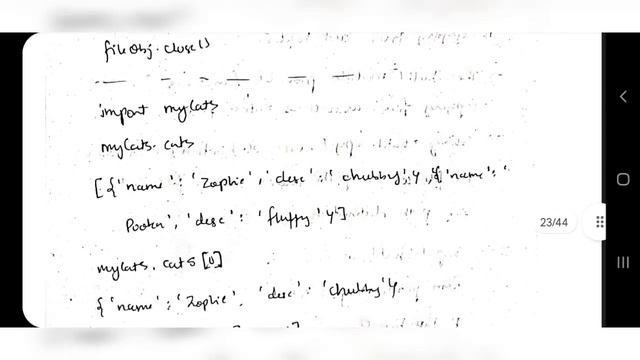 fileObj.close()
import myCats
myCats.cats
[{'name': 'Zophie', 'desc': 'chubby'}, {'name': '
Pooka', 'desc': 'fluffy'}]
23/44
myCats.cats[0]
{'name': 'Zophie', 'desc': 'chubby'}